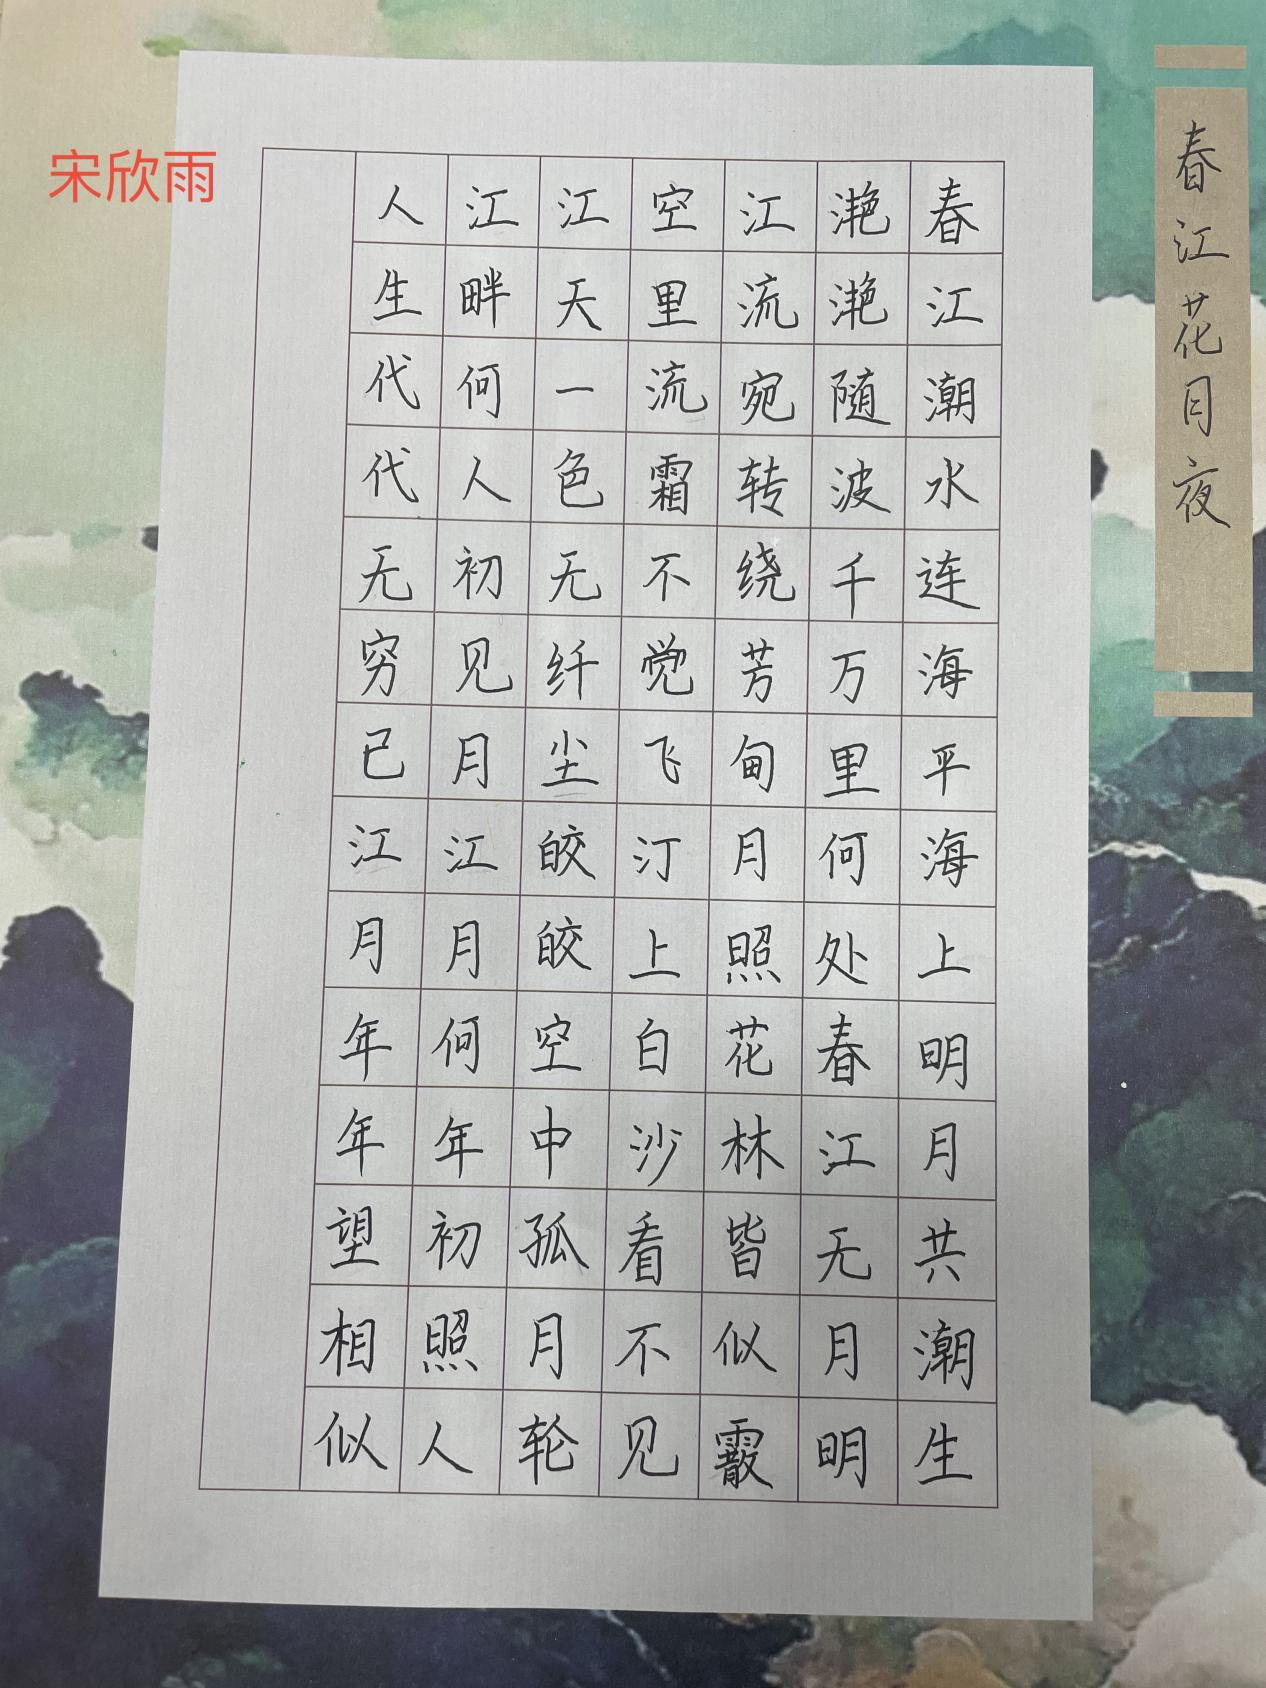 春江花月夜
春江潮水连海平海上明月共潮生
滟滟随波千万里何处春江无月明
江流宛转绕芳甸月照花林皆似霰
空里流霜不觉飞汀上白沙看不见
江天一色无纤尘皎皎空中孤月轮
江畔何人初见月江月何年初照人
人生代代无穷已江月年年望相似
宋欣雨